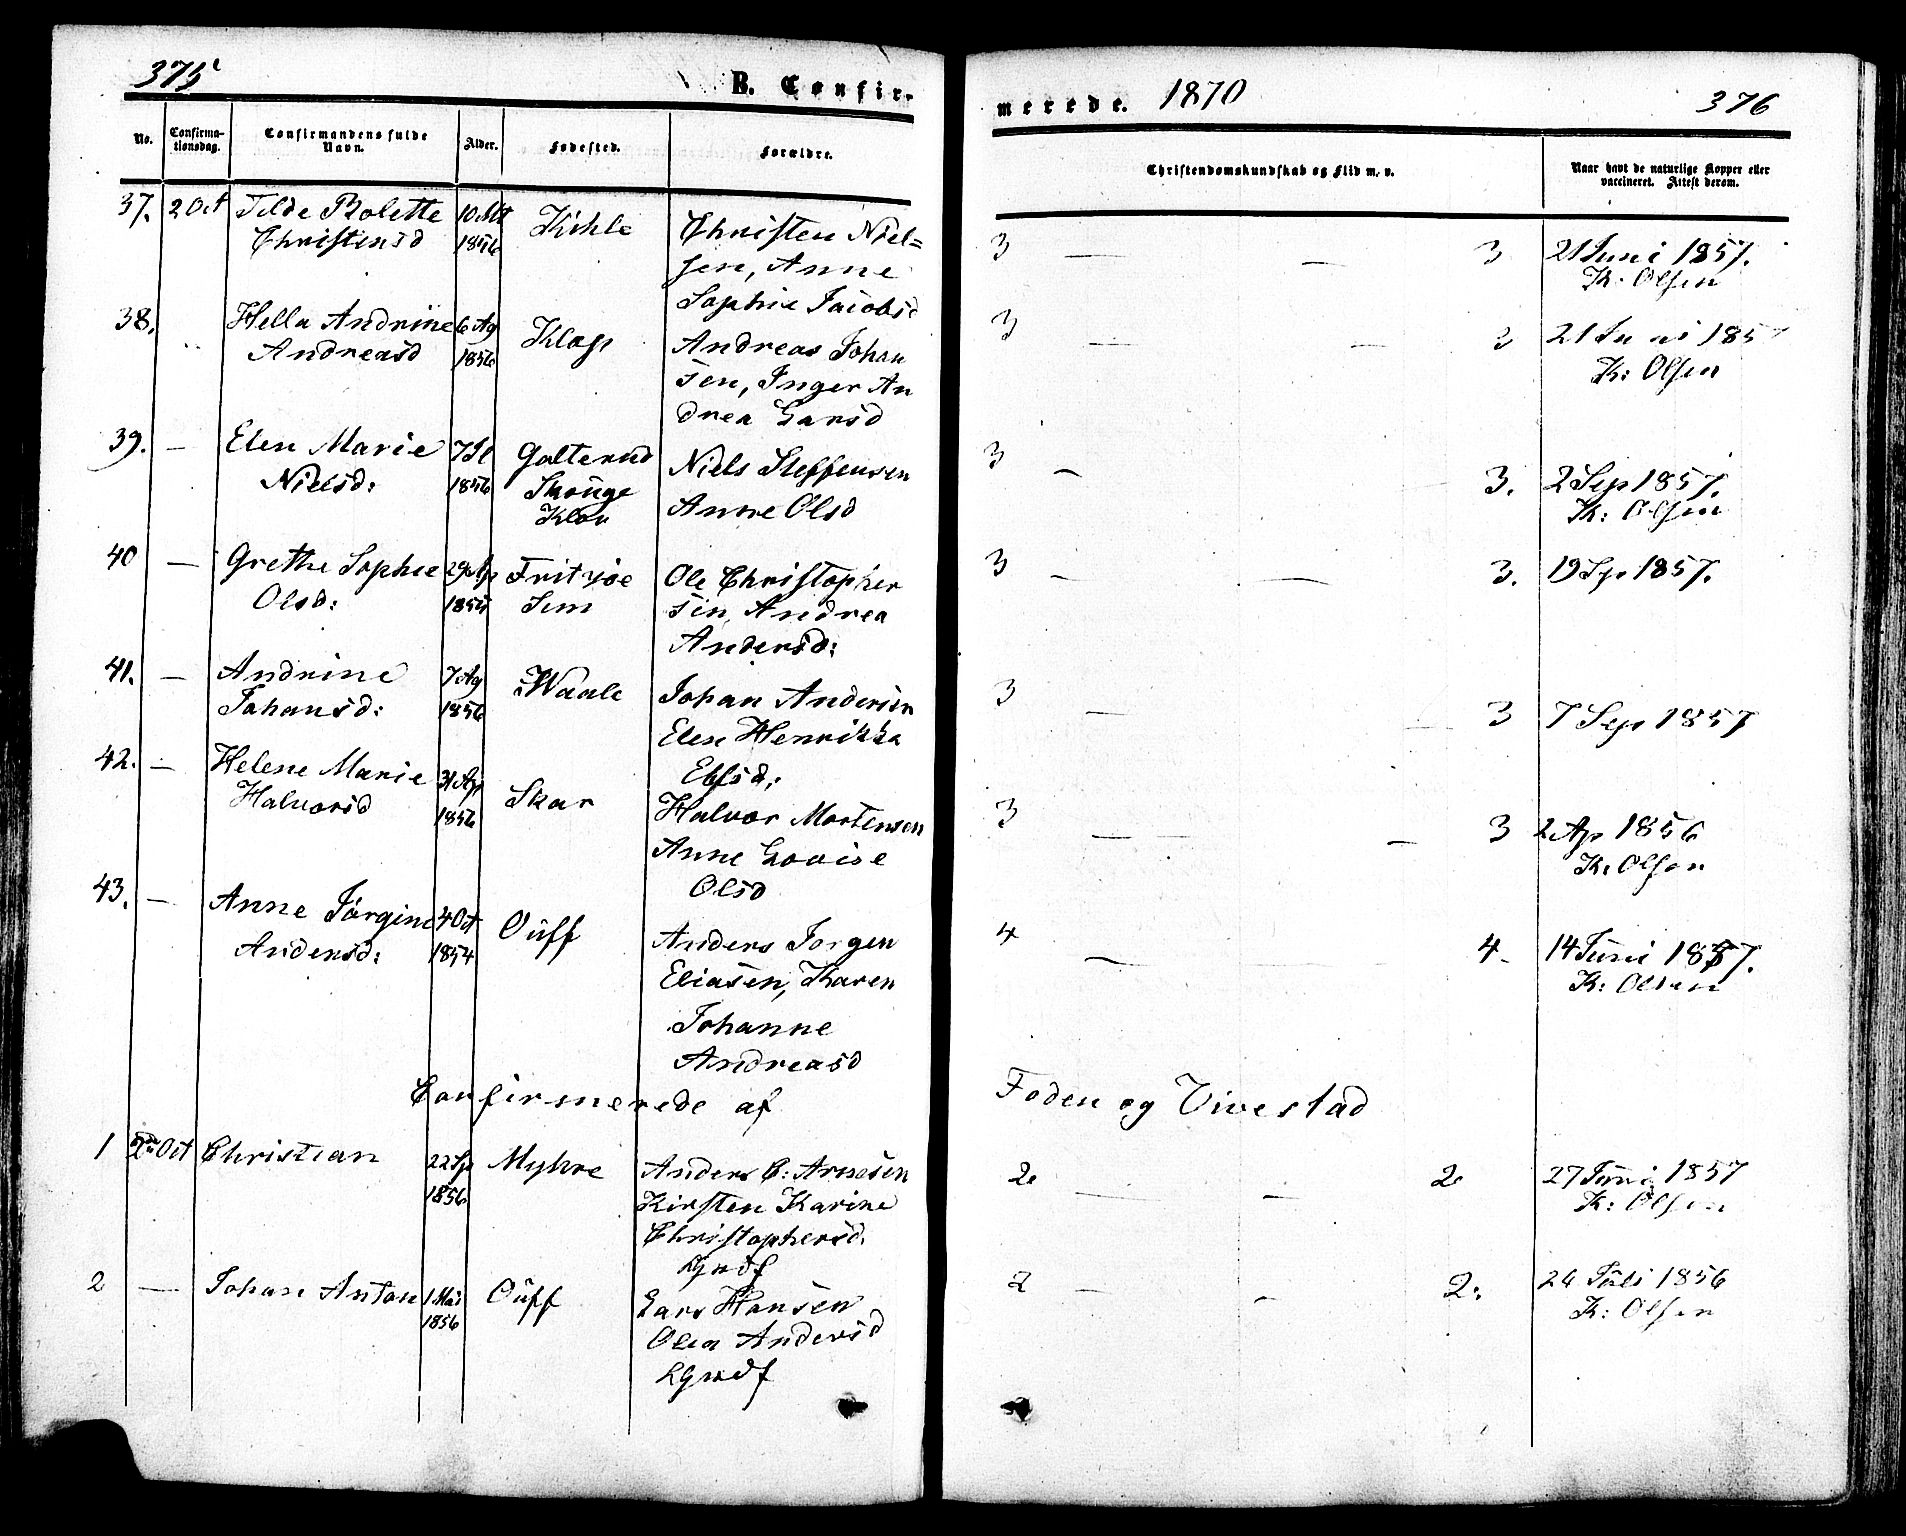 375
B. Confir-
No.
Confirma-
tionsdag.
Confirmandens fulde
Navn.
Alder.
Fødested.
Forældre.
37. 2 Oct Tilde Bolette 10 Mt Kihle Christen Niel=
Christensd 1856 sen, Anne
Sophie Jacobsd
38. Hella Andrine 6 Ag Klop Andreas Johan
Andreasd 1856 sen, Inger An
drea Larsd
39. — Elen Marie 7 Jl Galterud Niels Steffensen
Nielsd: 1856 Skouge Anne Olsd
40 — Grethe Sophie 29 Ap Fritzøe Ole Christopher
Olsd: Sem sen, Andrea
Andersd:
41. — Andrine 7 Ag Waale Johan Andersen
Johansd: 1856 Elen Henrikka
42. — Helene Marie 31 Skar
Halvorsd 1856 Halvor Mortensen
Anne Lovise
Olsd
43. — Anne Jörgine 4 Oct Ouff Anders Jorgen
Andersd: 1854 Eliasen, Karen
Johanne
Andreasd
Confirmerede af
1 2den Oct Christian 22 Sp Myhre Anders C: Arnesen
1856 Kirsten Karine
Christophersd.
Lgndf
2 — Johan Anton 1 Mai Ouff Lars Hansen
1856 Olea Andersd
Lgndf
merede. 1870
376
Christendomskundskab og Flid m. v.
Naar havt de naturlige Kopper eller
vaccineret. Attest derom.
3 — — 3 21 Juni 1857.
K. Olsen
3 — — 3 21 Juni 185
K: Olsen
3 — 3. 2 Sep 1857.
K: Olsen
3 — — 3. 19 Sp 1857.
3 — 3 7 Sep 1857
3 — — 3 2 Ap 1856
K. Olsen
4 — 4- 14 Juni 1857.
K: Olsen
Foden og Vivestad
2 — — 2 27 Juni 1857
K: Olsen
2 — — 2: 26 Juli 1856
K: Olsen